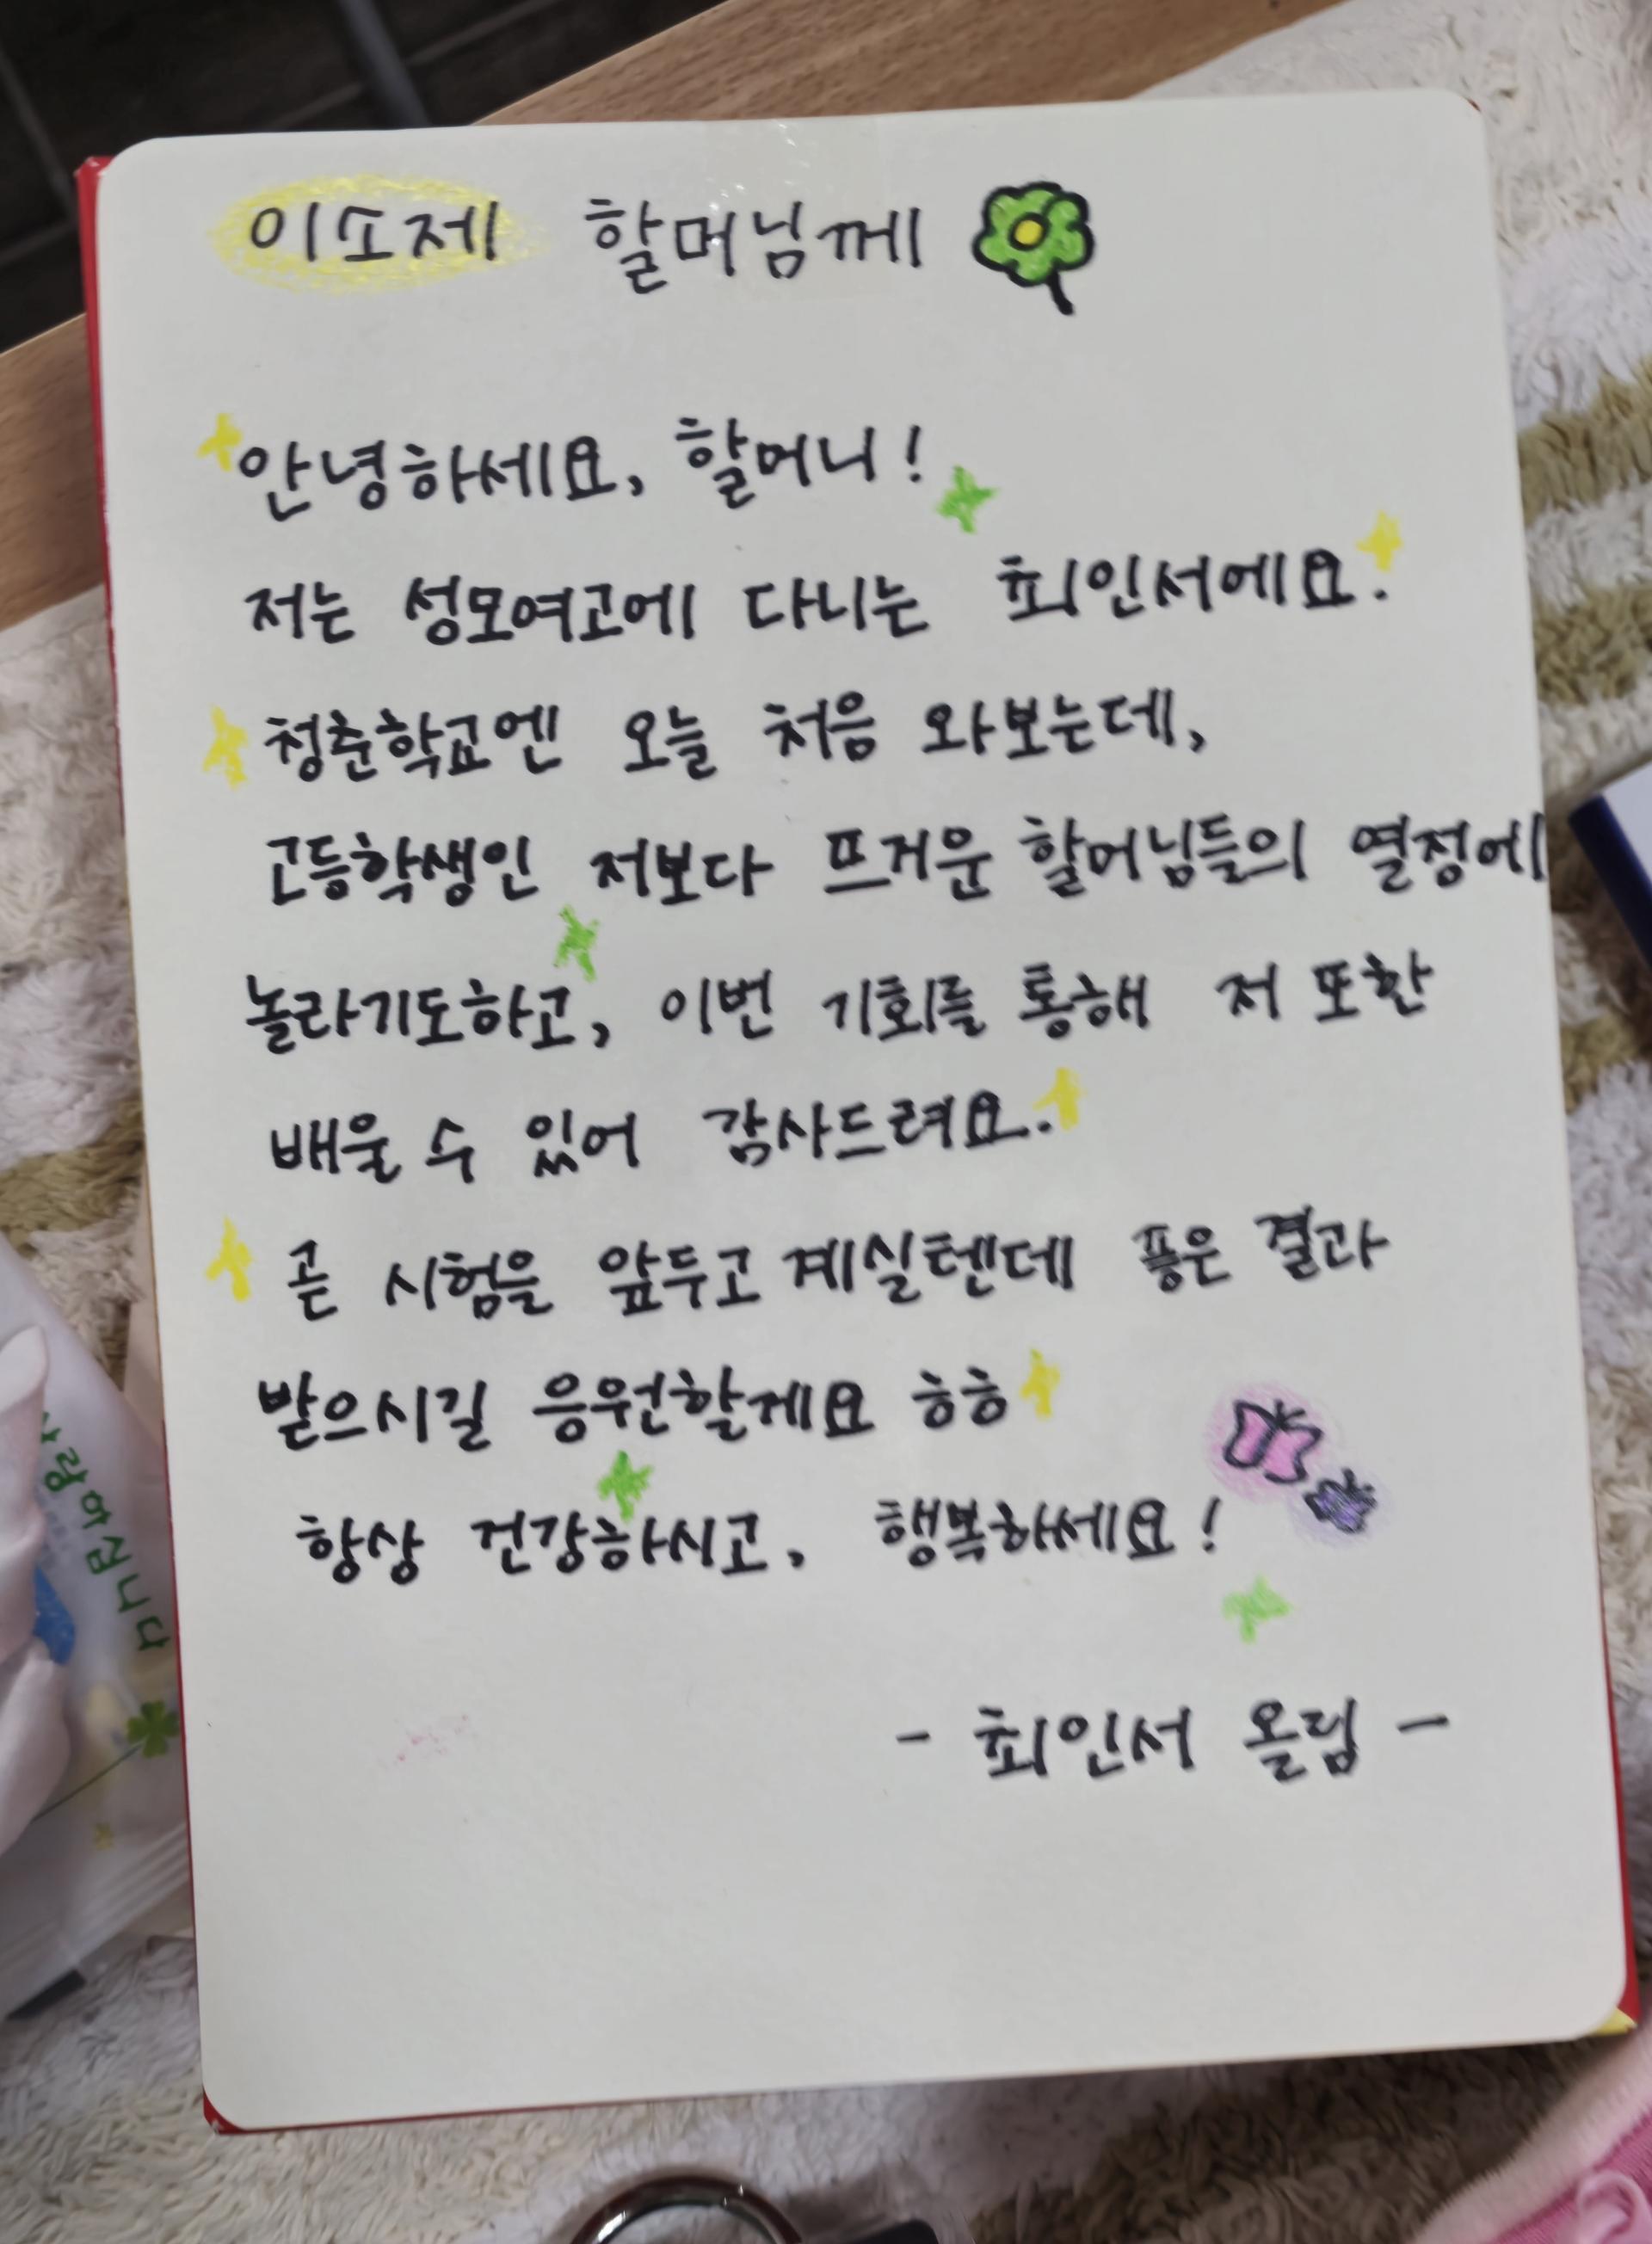 이소제 할머님께
안녕하세요, 할머니!
저는 성모여고에 다니는 최인서에요.
청춘학교엔 오늘 처음 와보는데,
고등학생인 저보다 뜨거운 할머님들의 열정에
놀라기도하고, 이번 기회를 통해 저 또한
배울 수 있어 감사드려요.
곧 시험을 앞두고 계실텐데 좋은 결과
받으시길 응원할게요 ㅎㅎ
항상 건강하시고, 행복하세요!
- 최인서 올림 -
사랑하십니다